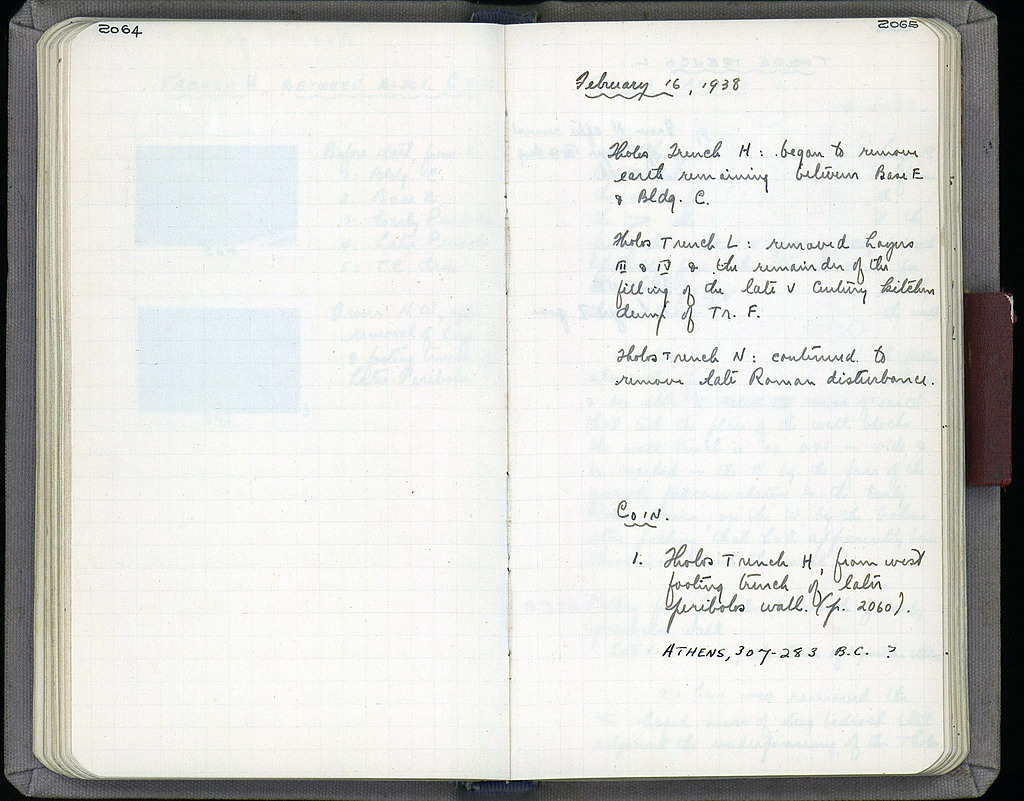 2064
2065
February 16, 1938
Tholos Trench H: began to remove
earth remaining between Base E
& Bldg. C.
Tholos Trench L: removed Layers
III & IV & the remainder of the
filling of the late V Century kitchen
dump of Tr. F.
Tholos Trench N: continued to
remove late Roman disturbance.
COIN.
1. Tholos Trench H, from west
footing trench of later
peribolos wall. (p. 2060).
ATHENS, 307-283 B.C. ?